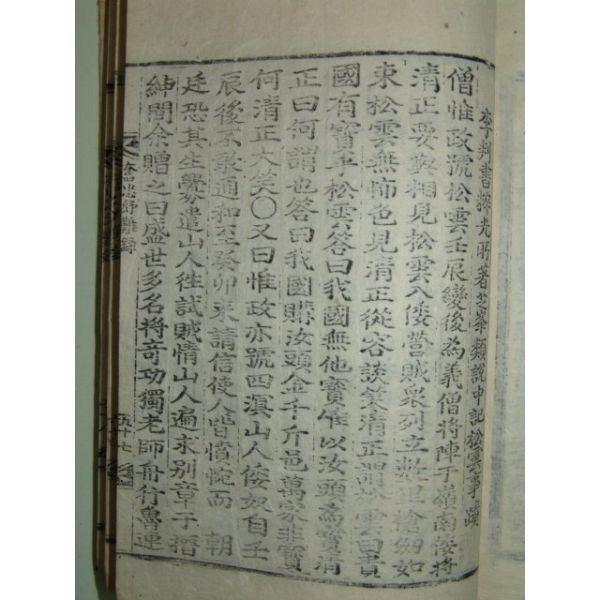 李判書睟光所著芝峯類說中記松雲事蹟
僧惟政號松雲壬辰變後為義僧將陣于嶺南倭將
清正要與相見松雲入倭營賊衆列立數里槍劒如
束松雲無怖色見清正從容談笑清正謂松雲曰貴
國有寶乎松雲答曰我國無他寶惟以汝頭為寶清
正曰何謂也答曰我國購汝頭金千斤邑萬家非寶
何清正大笑〇又曰惟政亦號四溟山人倭奴自壬
辰後不敢通和至癸卯來請信使人皆憤惋而 朝
廷恐其生釁遣山人徃試賊情山人遍求別章于搢
紳間余贈之曰盛世多名將奇功獨老師舟行魯連
奮忠紓難錄
五十七